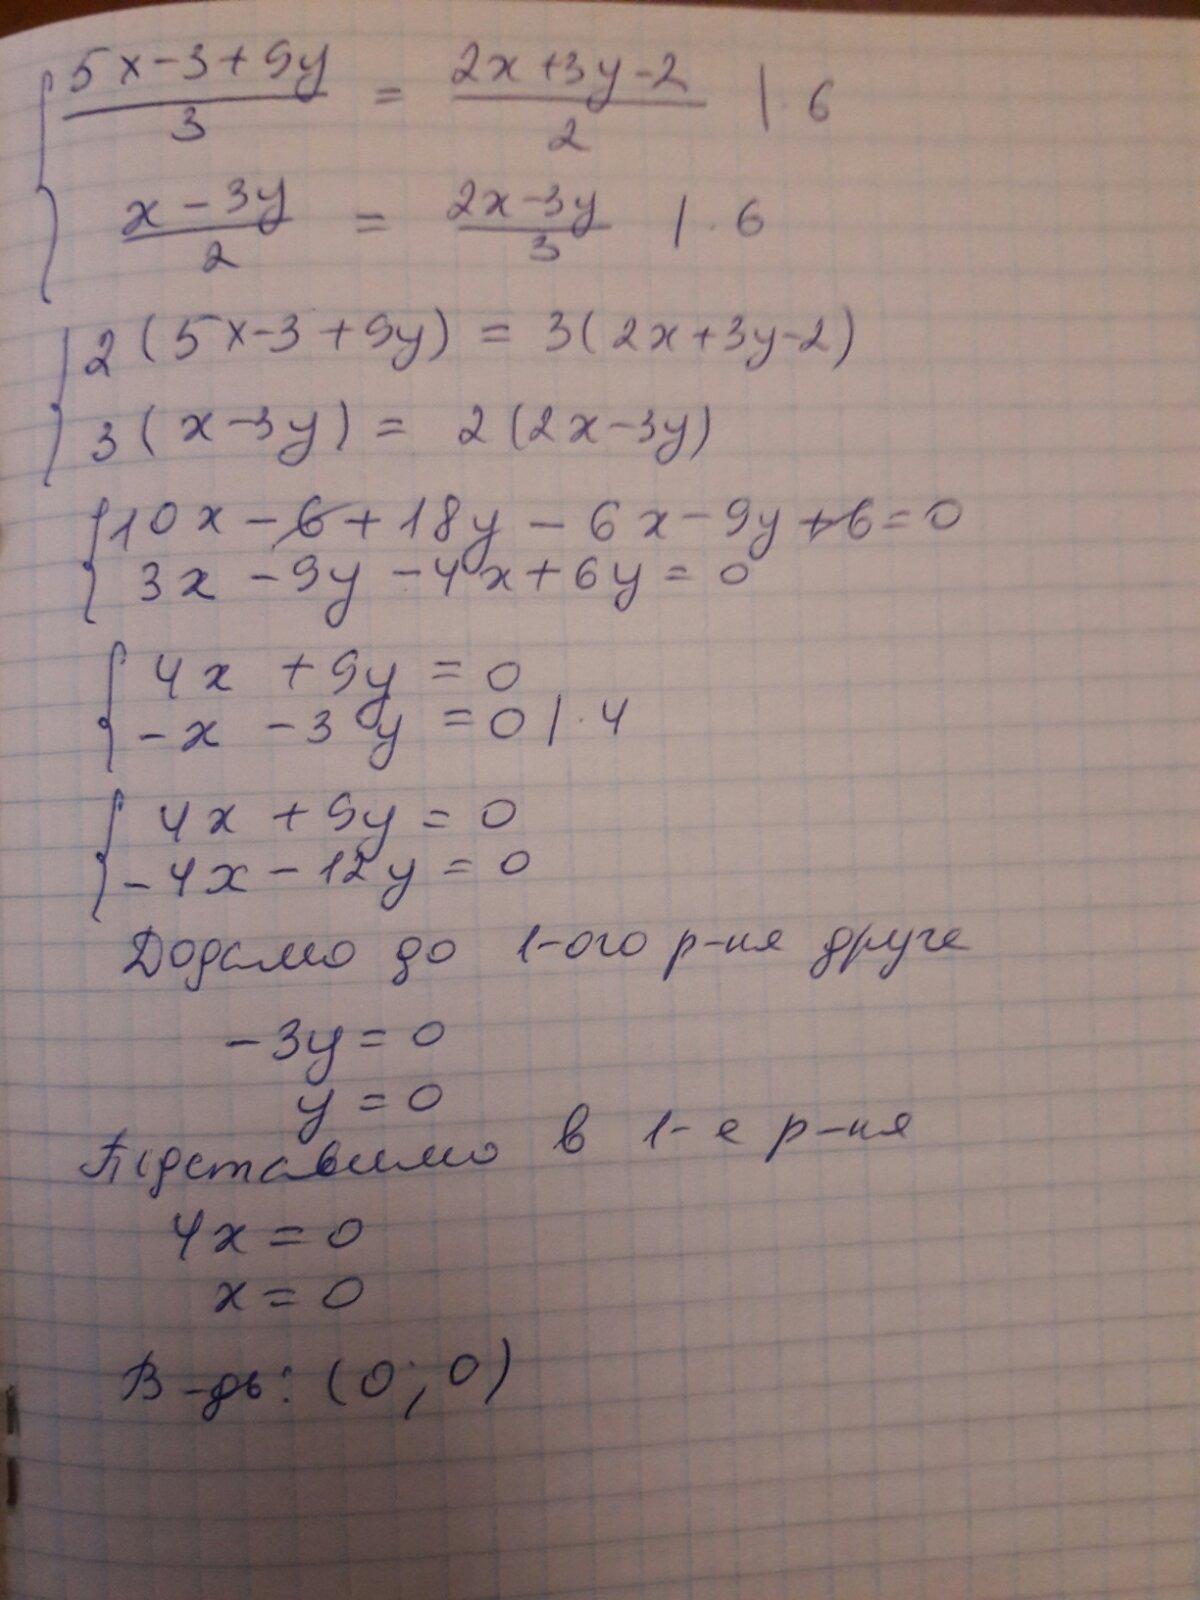 { (5x-3+9y)/3 = (2x+3y-2)/2 | · 6
(x-3y)/2 = (2x-3y)/3 | · 6
{ 2(5x-3+9y) = 3(2x+3y-2)
3(x-3y) = 2(2x-3y)
{ 10x - 6 + 18y - 6x - 9y + 6 = 0
3x - 9y - 4x + 6y = 0
{ 4x + 9y = 0
-x - 3y = 0 | · 4
{ 4x + 9y = 0
-4x - 12y = 0
Додамо до 1-ого р-ня друге
-3y = 0
y = 0
Підставимо в 1-е р-ня
4x = 0
x = 0
В-дь: (0; 0)